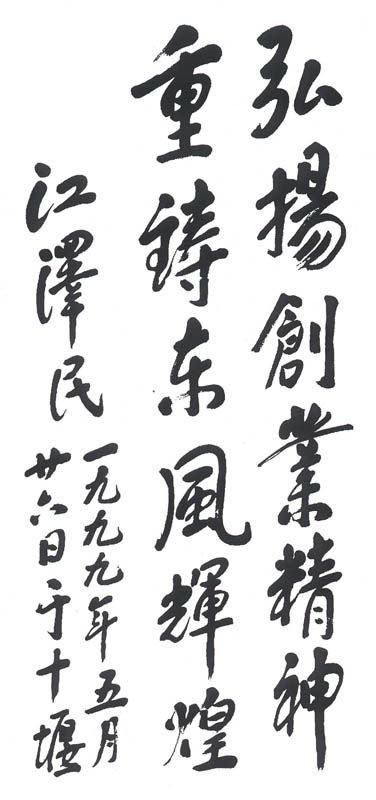 弘揚創業精神
重鑄东風輝煌
江澤民
一九九九年五月
廿六日于十堰